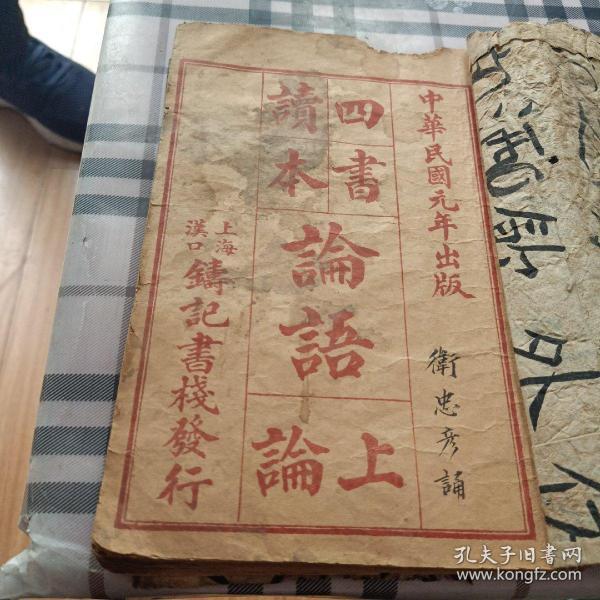 中華民國元年出版
衛忠彦誦
四書
讀本
論語
上論
上海
漢口
鑄記書棧發行
孔夫子旧书网
www.kongfz.com